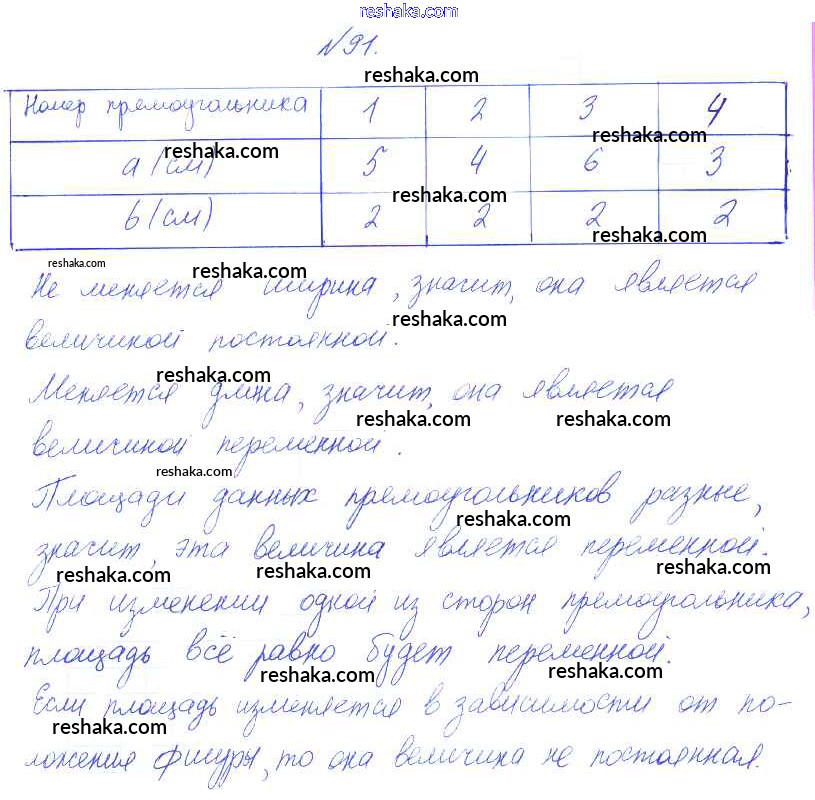 reshaka.com
№91.
reshaka.com
Номер прямоугольника 1 2 3 4
reshaka.com
reshaka.com
а (см) 5 4 6 3
reshaka.com
b (см) 2 2 2 2
reshaka.com
reshaka.com reshaka.com
Не меняется ширина, значит, она является
reshaka.com
величиной постоянной.
reshaka.com
Меняется длина, значит, она является
reshaka.com reshaka.com
величиной переменной.
reshaka.com
Площади данных прямоугольников разные,
reshaka.com
значит, эта величина является переменной.
reshaka.com reshaka.com reshaka.com
При изменении одной из сторон прямоугольника,
площадь всё равно будет переменной.
reshaka.com
Если площадь изменяется в зависимости от по-
reshaka.com reshaka.com
ложения фигуры, то она величина не постоянная.